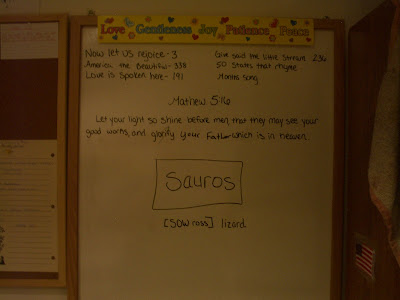 Love Gentleness Joy Patience Peace
Now let us rejoice - 3
America the Beautiful - 338
Love is Spoken here - 191
Give said the little stream 236
50 States that rhyme
Months song
Mathew 5:16
Let your light so shine before men, that they may see your
good works, and glorify your Father which is in heaven.
Sauros
[SOW ross] lizard.